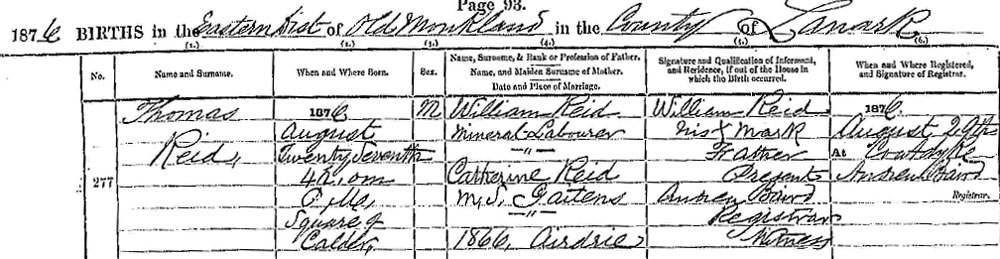 Page 93.
1876 BIRTHS in the Eastern Dist of Old Monkland in the County of Lanark
(1.) (2.) (3.) (4.) (5.) (6.)
No.
Name and Surname.
When and Where Born.
Sex.
Name, Surname, & Rank or Profession of Father.
Name, and Maiden Surname of Mother.
Date and Place of Marriage.
Signature and Qualification of Informant,
and Residence, if out of the House in
which the Birth occurred.
When and Where Registered,
and Signature of Registrar.
277
Thomas
Reid,
1876,
August
Twenty Seventh
P.M.
Square of
Calder,
M
William Reid
Mineral Labourer
—"—
Catherine Reid
M.S. Gaitens
—"—
1866, Airdrie
William Reid
his X mark
Father
Present
Andrew Baird
Registrar
Witness
1876.
August 29th
At Coatdyke
Andrew Baird
Registrar.